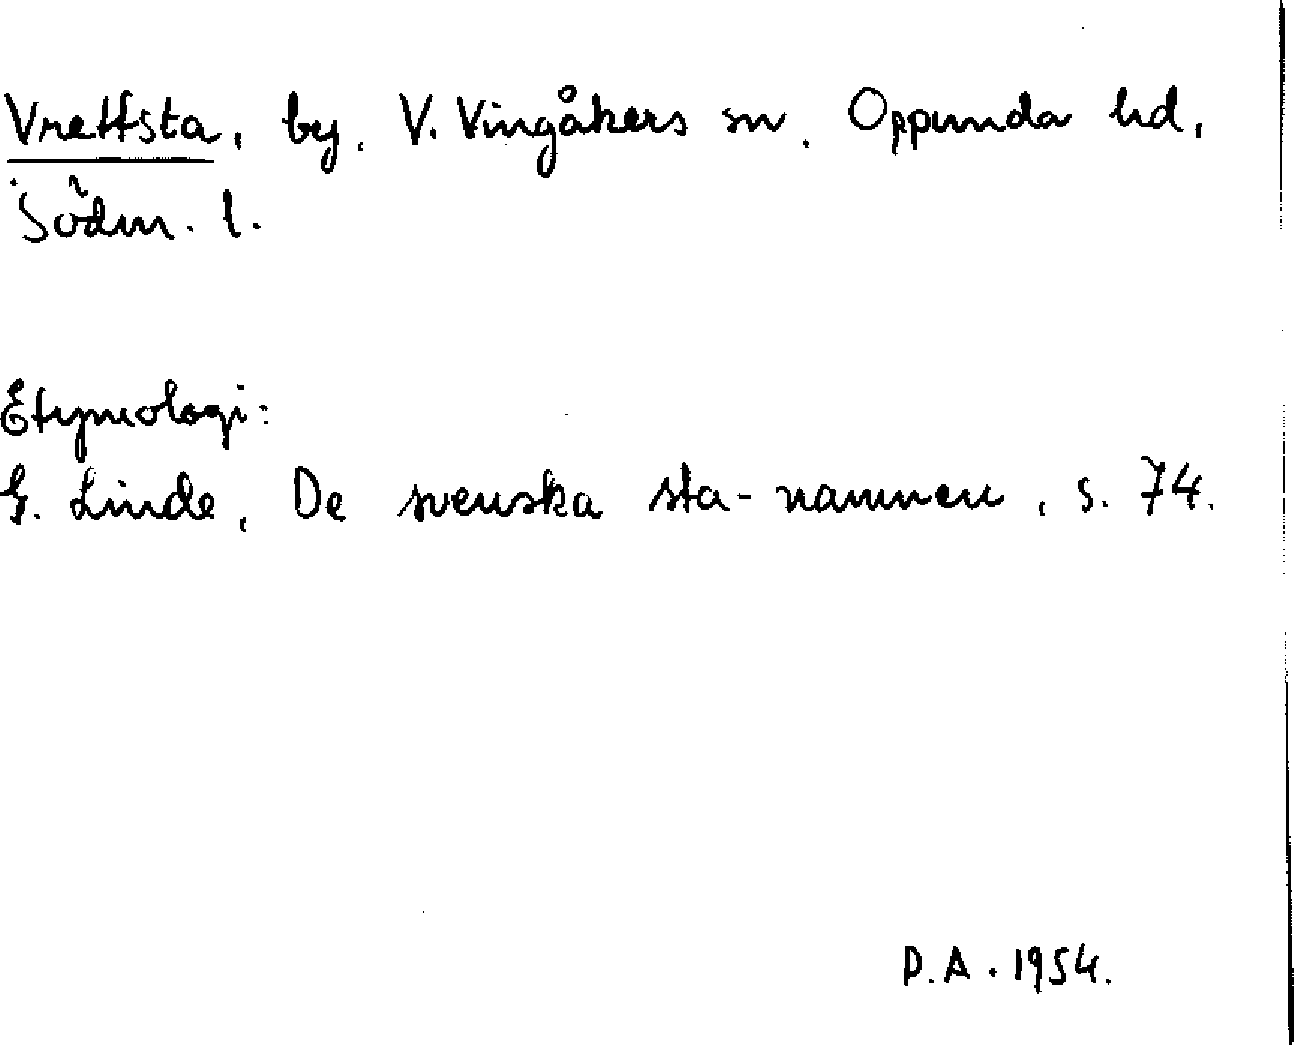 Vrettsta, by, V. Vingåkers sn. Oppunda hd,
Södm. l.
Etymologi:
G. Linde, De svenska sta-namnen, s. 74.
P.A. 1954.